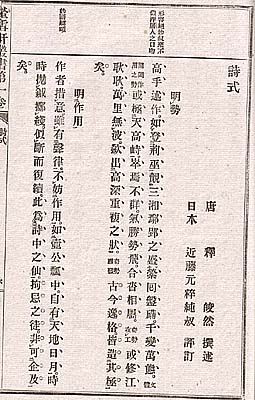 詩式
唐 釋 皎然 撰述
日本 近藤元粹純叔 評訂
明勢
高手述作。如登荊巫。覿三湘鄢郢之盛。縈回盤礴。千變萬態。文體
開闔作用之勢或極天高峙。崒焉不群。氣勝勢飛。合沓相屬。奇勢在工或修江
耿耿。萬里無波。欻出高深重複之狀。奇勢互發古今逸格。皆造其極
矣。
明作用
作者措意。雖有聲律。不妨作用。如壺公瓢中。自有天地日月。時
時拋鍼擲線。似斷而復續。此爲詩中之仙。拘忌之徒。非可企及
矣。
螢雪軒叢書第一卷
詩式